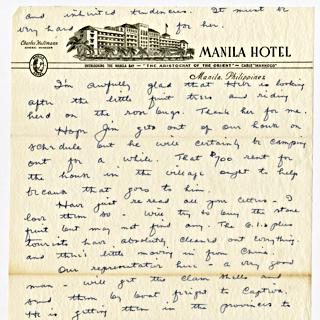 and inherited tendencies. It must be
very hard for her.
MANILA HOTEL
OVERLOOKING THE MANILA BAY — "THE ARISTOCRAT OF THE ORIENT" — CABLE "MANHOCO"
Manila, Philippines
I'm awfully glad that is looking
after the little fruit trees and riding
herd on the rose bugs. Thank her for me.
Hope Jim gets out of our house on
schedule but he will certainly be camping
out for a while. That $700 rent for
the house in the village ought to help
because that goes to him.
Have just re read all your letters - I
love them so - Will try to buy the stone
fruit but may not find any. The G.I.s plus
tourists have absolutely cleaned out everything.
and there's little moving in from China.
Our representative here - a very good
man - will get the clam shells and
send them by boat freight to Captiva.
He is getting them in the provinces to